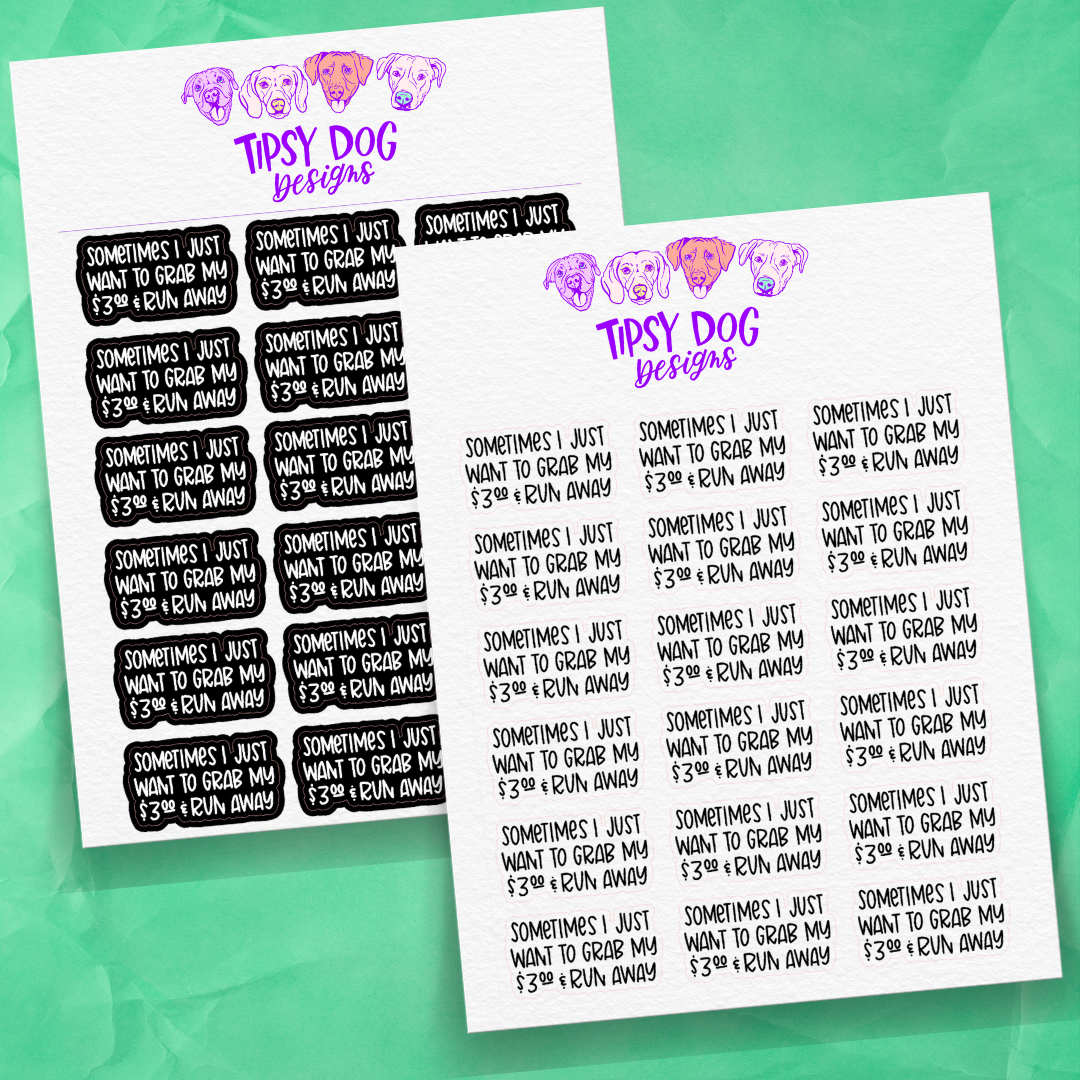 TIPSY DOG
Designs
SOMETIMES I JUST
WANT TO GRAB MY
$3⁰⁰ & RUN AWAY
SOMETIMES I JUST
WANT TO GRAB MY
$3⁰⁰ & RUN AWAY
SOMETIMES I JUST
SOMETIMES I JUST
WANT TO GRAB MY
$3⁰⁰ & RUN AWAY
SOMETIMES I JUST
WANT TO GRAB MY
$3⁰⁰ & RUN AWAY
SOMETIMES I JUST
WANT TO GRAB MY
$3⁰⁰ & RUN AWAY
SOMETIMES I JUST
WANT TO GRAB MY
$3⁰⁰ & RUN AWAY
SOMETIMES I JUST
WANT TO GRAB MY
$3⁰⁰ & RUN AWAY
SOMETIMES I JUST
WANT TO GRAB MY
$3⁰⁰ & RUN AWAY
SOMETIMES I JUST
WANT TO GRAB MY
$3⁰⁰ & RUN AWAY
SOMETIMES I JUST
WANT TO GRAB MY
$3⁰⁰ & RUN AWAY
SOMETIMES I JUST
WANT TO GRAB MY
$3⁰⁰ & RUN AWAY
SOMETIMES I JUST
WANT TO GRAB MY
$3⁰⁰ & RUN AWAY
TIPSY DOG
Designs
SOMETIMES I JUST
WANT TO GRAB MY
$3⁰⁰ & RUN AWAY
SOMETIMES I JUST
WANT TO GRAB MY
$3⁰⁰ & RUN AWAY
SOMETIMES I JUST
WANT TO GRAB MY
$3⁰⁰ & RUN AWAY
SOMETIMES I JUST
WANT TO GRAB MY
$3⁰⁰ & RUN AWAY
SOMETIMES I JUST
WANT TO GRAB MY
$3⁰⁰ & RUN AWAY
SOMETIMES I JUST
WANT TO GRAB MY
$3⁰⁰ & RUN AWAY
SOMETIMES I JUST
WANT TO GRAB MY
$3⁰⁰ & RUN AWAY
SOMETIMES I JUST
WANT TO GRAB MY
$3⁰⁰ & RUN AWAY
SOMETIMES I JUST
WANT TO GRAB MY
$3⁰⁰ & RUN AWAY
SOMETIMES I JUST
WANT TO GRAB MY
$3⁰⁰ & RUN AWAY
SOMETIMES I JUST
WANT TO GRAB MY
$3⁰⁰ & RUN AWAY
SOMETIMES I JUST
WANT TO GRAB MY
$3⁰⁰ & RUN AWAY
SOMETIMES I JUST
WANT TO GRAB MY
$3⁰⁰ & RUN AWAY
SOMETIMES I JUST
WANT TO GRAB MY
$3⁰⁰ & RUN AWAY
SOMETIMES I JUST
WANT TO GRAB MY
$3⁰⁰ & RUN AWAY
SOMETIMES I JUST
WANT TO GRAB MY
$3⁰⁰ & RUN AWAY
SOMETIMES I JUST
WANT TO GRAB MY
$3⁰⁰ & RUN AWAY
SOMETIMES I JUST
WANT TO GRAB MY
$3⁰⁰ & RUN AWAY